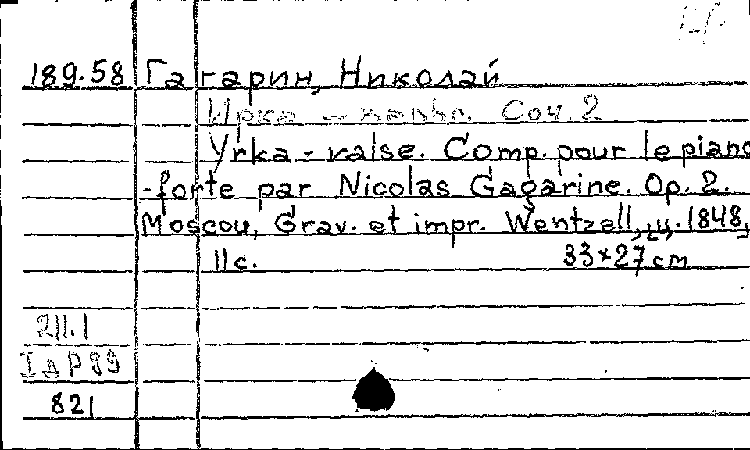 189.58 Гагарин, Николай
Ирка - вальс. Соч. 2
Yrka - valse. Comp. pour le piano
-forte par Nicolas Gagarine. Op. 2.
Moscou, Grav. et impr. Wentzell, ц. 1848,
11 с. 33×27 см
211.1
821